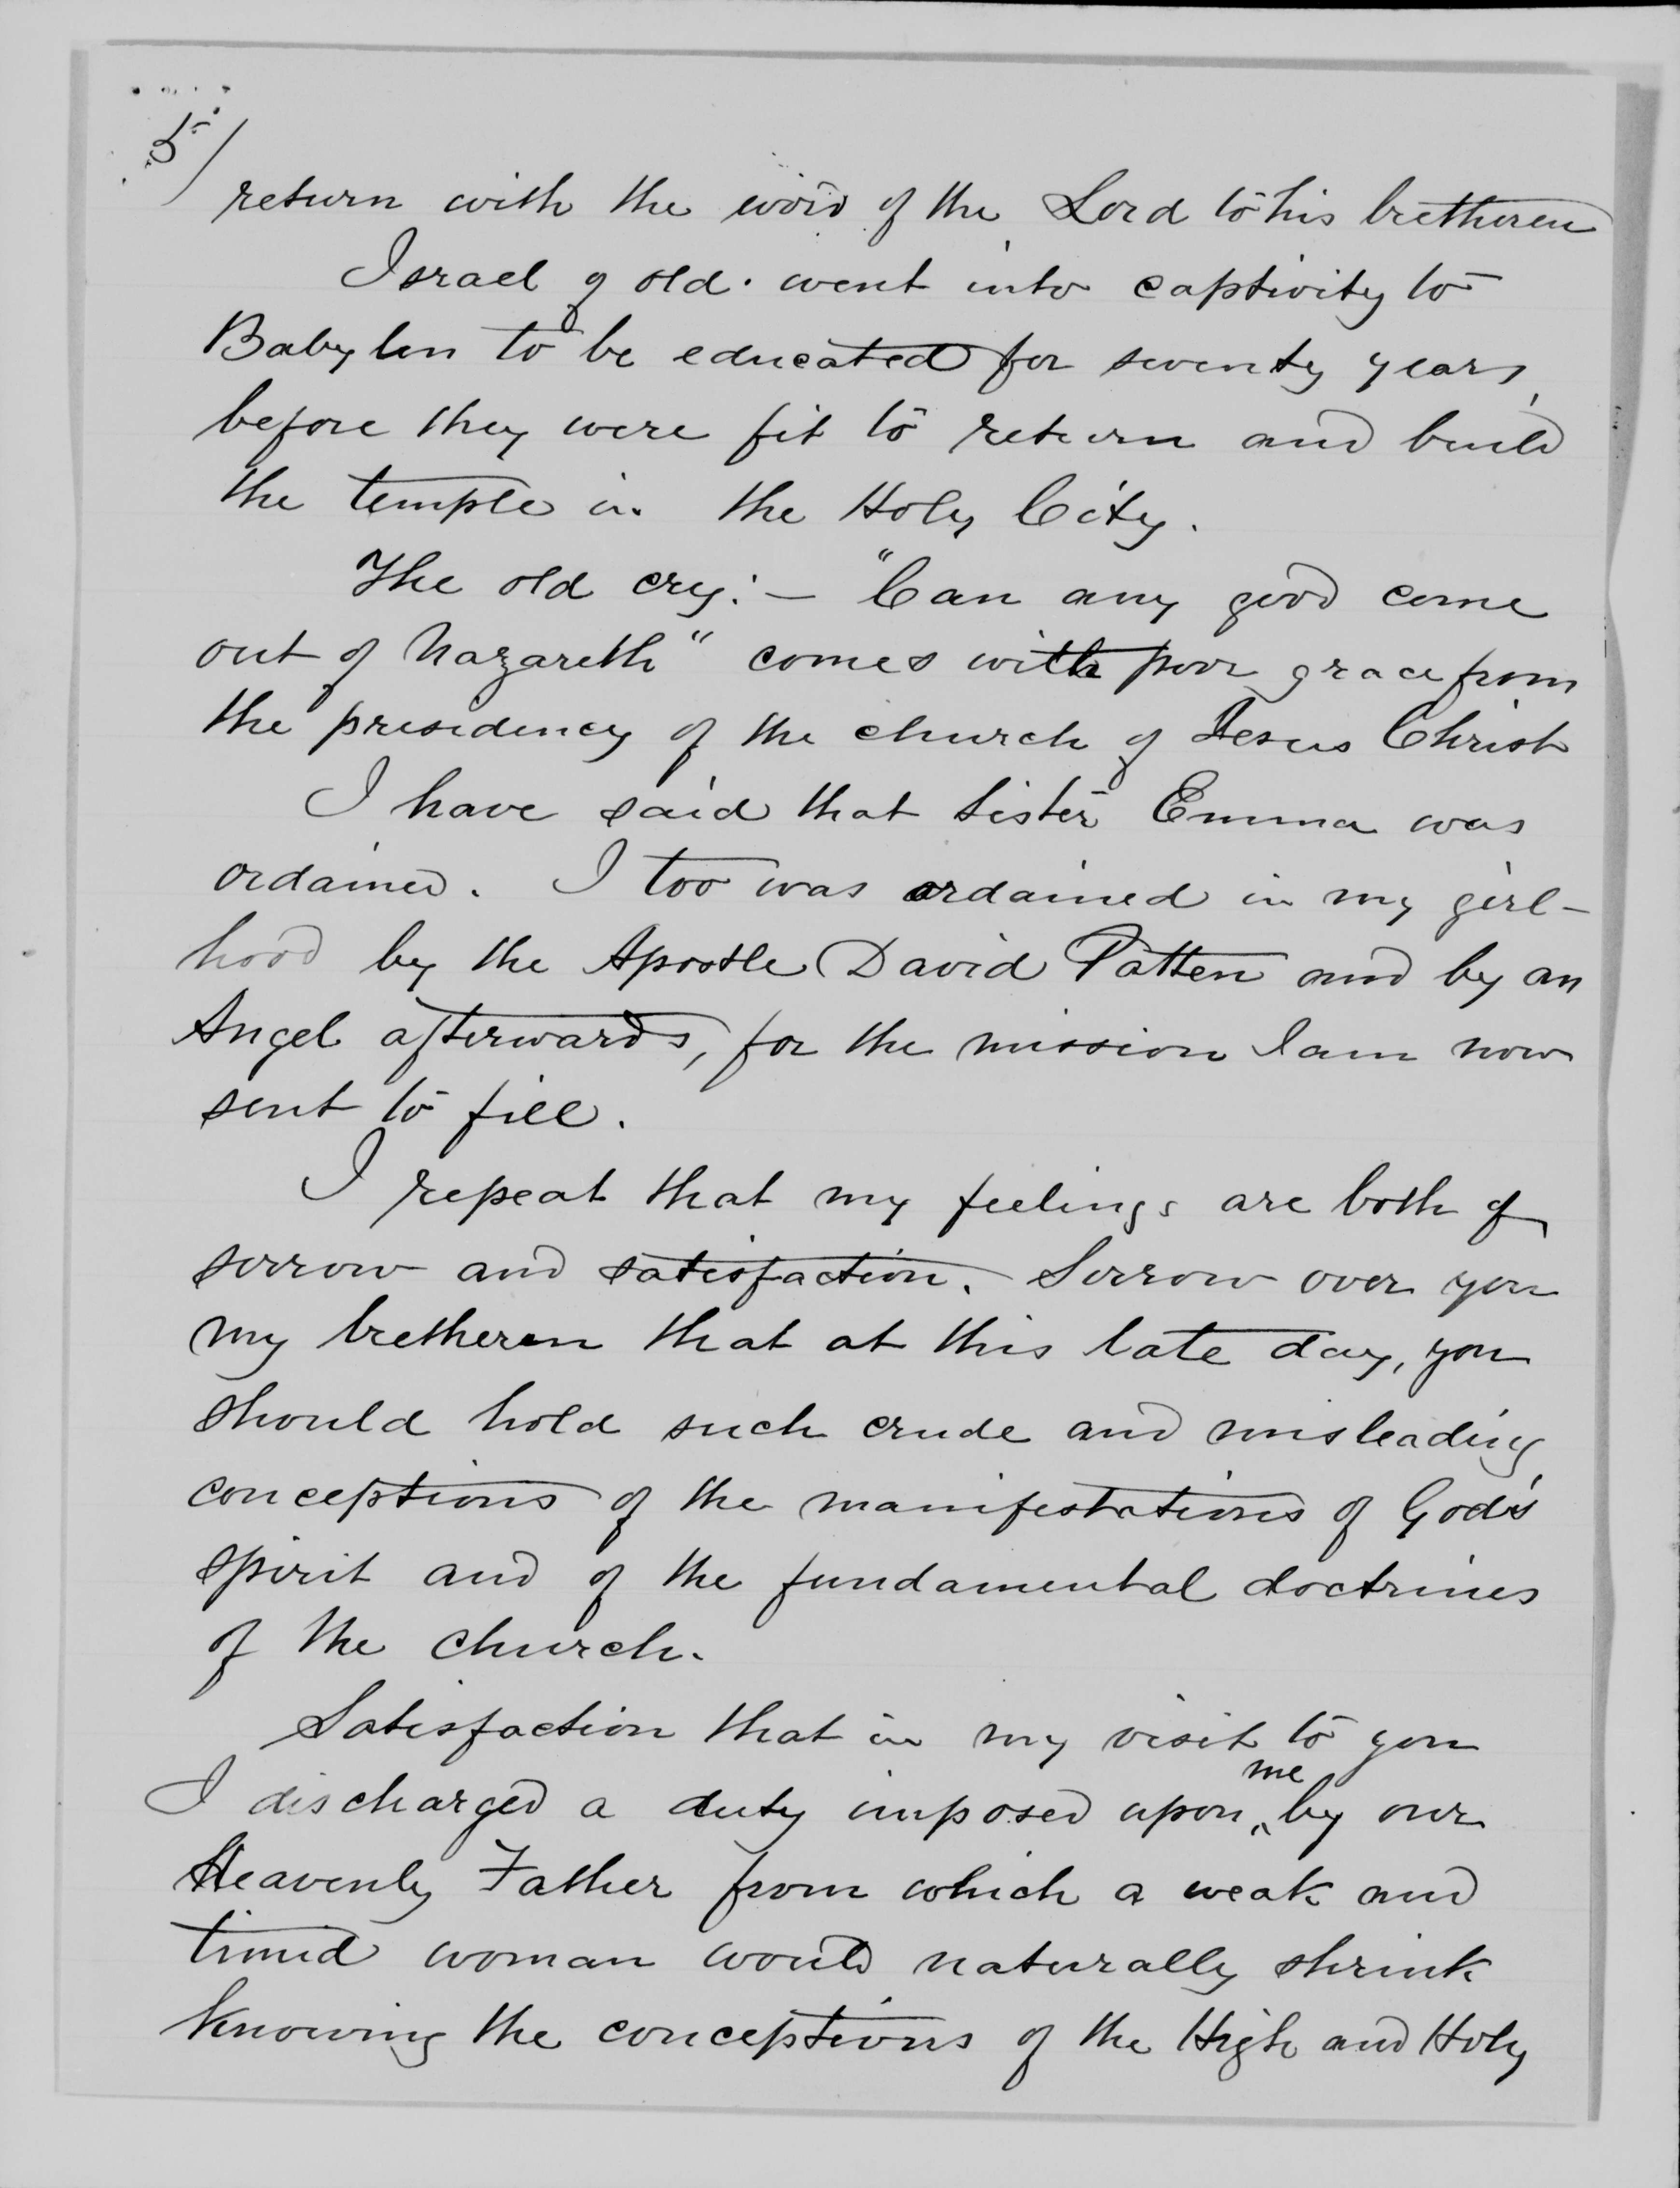 5/
return with the word of the Lord to his bretheren
Israel of old. went into captivity to
Babylon to be educated for seventy years,
before they were fit to return and build
the temple in the Holy City.
The old cry:— "Can any good come
out of Nazareth" comes with poor grace from
the presidency of the church of Jesus Christ
I have said that Sister Emma was
ordained. I too was ordained in my girl-
hood by the Apostle David Patten and by an
Angel afterwards, for the mission I am now
sent to fill.
I repeat that my feelings are both of
sorrow and satisfaction. Sorrow over you
my bretheren that at this late day, you
should hold such crude and misleading
conceptions of the manifestations of God's
spirit and of the fundamental doctrines
of the church.
Satisfaction that in my visit to you
I discharged a duty imposed upon ^me by our
Heavenly Father from which a weak and
timid woman would naturally shrink
knowing the conceptions of the High and Holy